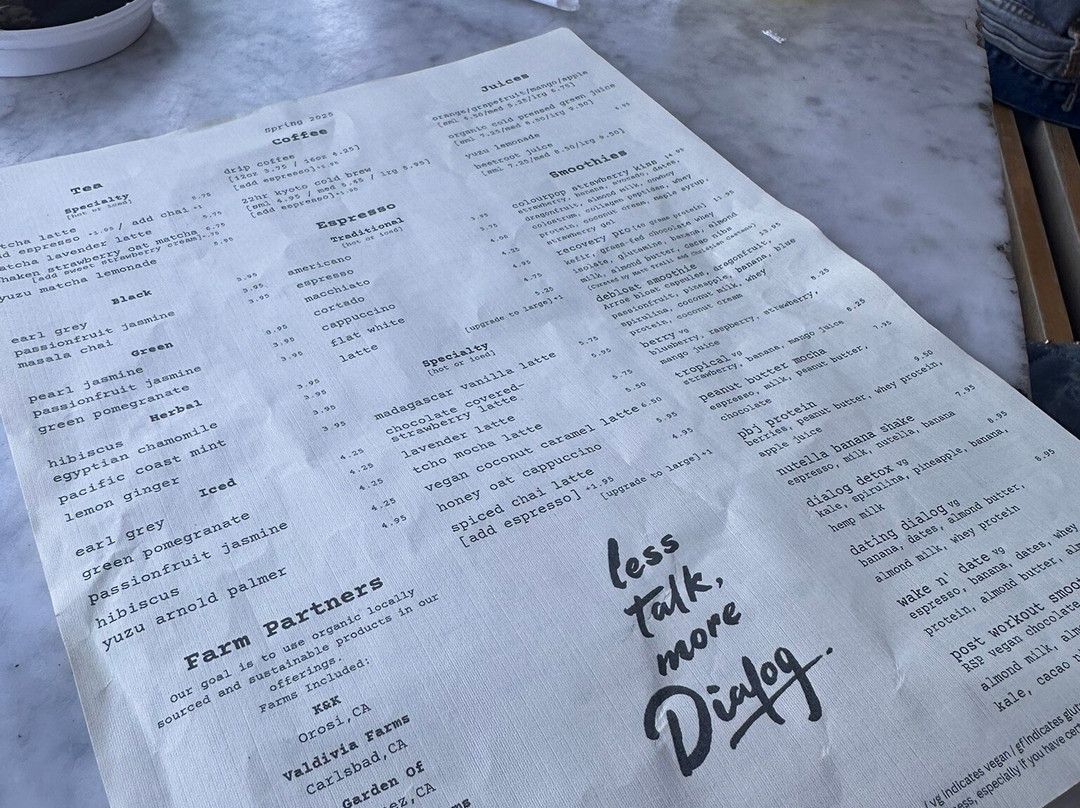 Spring 2025
Tea
Specialty
[hot or iced]
tcha latte 5.75
d espresso +1.95/ add chai +1
atcha lavender latte 5.75
haken strawberry oat matcha 6.75
[add sweet strawberry cream]+.75
yuzu matcha lemonade 6.95
Black
earl grey 3.95
passionfruit jasmine 3.95
masala chai 3.95
Green
pearl jasmine 3.95
passionfruit jasmine 3.95
green pomegranate 3.95
Herbal
hibiscus 3.95
egyptian chamomile 3.95
pacific coast mint 3.95
lemon ginger 3.95
Iced
earl grey 4.25
green pomegranate 4.25
passionfruit jasmine 4.25
hibiscus 4.25
yuzu arnold palmer 4.95
Farm Partners
our goal is to use organic locally
sourced and sustainable products in our
offerings.
Farms Included:
K&K
Orosi,CA
Valdivia Farms
Carlsbad,CA
Garden of
ez,CA
ms
Coffee
drip coffee
[12oz 3.75 / 16oz 4.25]
[add espresso]+1.95
22hr kyoto cold brew
[sml 4.95 / med 5.45 / lrg 5.95]
[add espresso]+1.95
Espresso
Traditional
[hot or iced]
americano 3.95
espresso 3.75
macchiato
cortado
cappuccino 4.75
flat white
latte 5.25
[upgrade to large]+1
Specialty
[hot or iced]
madagascar vanilla latte 5.75
chocolate covered- 5.95
strawberry latte
lavender latte 5.75
tcho mocha latte 5.50
vegan coconut caramel latte 6.50
honey oat cappuccino 5.95
spiced chai latte 4.95
[add espresso] +1.95
[upgrade to large]+1
less
talk,
more
Dialog.
Juices
orange/grapefruit/mango/apple
[sml 4.50/med 5.25/lrg 6.75]
organic cold pressed green juice
[sml 7.25/med 8.50/lrg 9.50]
yuzu lemonade 4.95
beetroot juice
[sml 7.25/med 8.50/lrg 9.50]
Smoothies
colourpop strawberry kiss 14.95
strawberry, banana, avocado, dates,
dragonfruit, almond milk, cowboy
colostrum, collagen peptides, whey
protein, coconut cream, maple syrup,
strawberry oat
recovery pro
kefir, grass-fed chocolate whey
isolate, glutamine, banana, almond
milk, almond butter, cacao nibs
debloat smoothie 13.95
Arrae bloat capsules, dragonfruit,
passionfruit, pineapple, banana, blue
spirulina, coconut milk, whey
protein, coconut cream
berry vg 8.25
blueberry, raspberry, strawberry,
mango juice
tropical vg 8.25
strawberry, banana, mango juice
peanut butter mocha 7.95
espresso, milk, peanut butter,
chocolate
pbj protein 9.50
berries, peanut butter, whey protein,
apple juice
nutella banana shake 7.95
espresso, milk, nutella, banana
dialog detox vg 8.95
kale, spirulina, pineapple, banana,
hemp milk
dating dialog vg 8.95
banana, dates, almond butter,
almond milk, whey protein
wake n' date vg
espresso, banana, dates, whey
protein, almond butter, al
post workout smoo
RSP vegan chocolate
almond milk, alm
kale, cacao n
/ vg indicates vegan / gf indicates glut
ness, especially if you have cert